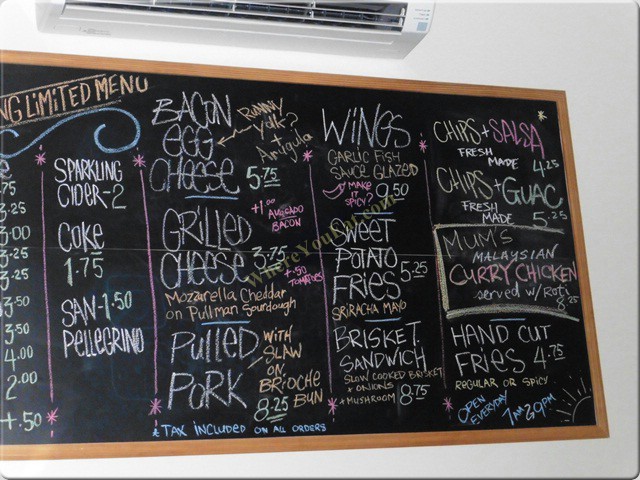 NG LIMITED MENU
e
.75
3.25
3.00
3.25
3.50
3.50
4.00
2.00
+.50
SPARKLING
CIDER-2
COKE
1.75
SAN-1.50
PELLEGRINO
BACON
EGG
CHEESE 5.75
RUNNY
Yolk?
+ Arugula
GRILLED
CHEESE 3.75
+1.00
AVOCADO
BACON
+.50
TOMATOES
Mozzarella Cheddar
on Pullman Sourdough
Pulled
PORK
WITH
SLAW
ON
BRIOCHE
BUN
8.25
* TAX INCLUDED ON ALL ORDERS
WINGS
GARLIC FISH
SAUCE GLAZED
MAKE
IT
SPICY?
9.50
SWEET
POTATO
FRIES 5.25
SRIRACHA MAYO
BRISKET
SANDWICH
SLOW COOKED BRISKET
+ ONIONS
+ MUSHROOM 8.75
CHIPS + SALSA
FRESH
MADE
4.25
CHIPS + GUAC
FRESH
MADE
5.25
MUM'S
MALAYSIAN
CURRY CHICKEN
served w/ Roti
8.25
HAND CUT
FRIES 4.75
REGULAR OR SPICY
OPEN
EVERYDAY
7AM
WhereYouEat.com